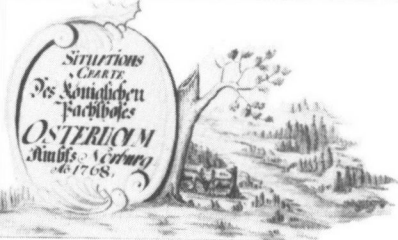 SITUATIONS
CHARTE
Des Königlichen
Pachthofes
OSTERHOLM
Ambts Norburg
Ao 1768.